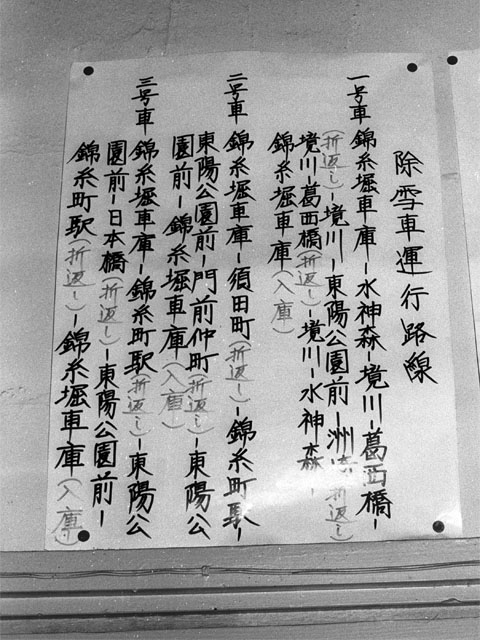 除雪車運行路線
一号車 錦糸堀車庫ー水神森ー境川ー葛西橋ー
(折返し)ー境川ー東陽公園前ー洲崎(折返し)
境川ー葛西橋(折返し)ー境川ー水神森ー
錦糸堀車庫(入庫)
二号車 錦糸堀車庫ー須田町(折返し)ー錦糸町駅ー
東陽公園前ー門前仲町(折返し)ー東陽公
園前ー錦糸堀車庫(入庫)
三号車 錦糸堀車庫ー錦糸町駅(折返し)ー東陽公
園前ー日本橋(折返し)ー東陽公園前ー
錦糸町駅(折返し)ー錦糸堀車庫(入庫)